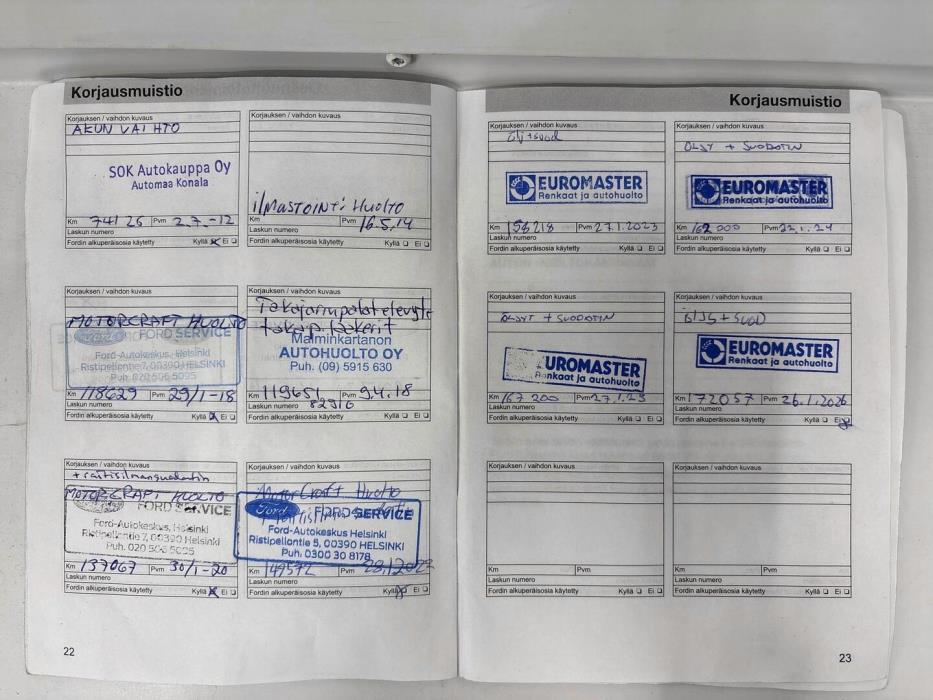 Korjausmuistio
Korjauksen / vaihdon kuvaus
AKUN VAIHTO
SOK Autokauppa Oy
Automaa Konala
Km 74126 Pvm 2.7.-12
Laskun numero
Fordin alkuperäisosia käytetty Kyllä Ei
Korjauksen / vaihdon kuvaus
ilMASTOiNTi HUOLTO
Km Pvm 16.5.14
Laskun numero
Fordin alkuperäisosia käytetty Kyllä Ei
Korjauksen / vaihdon kuvaus
MOTORCRAFT HUOLTO
Ford FORD SERVICE
Ford-Autokeskus, Helsinki
Ristipellontie 7, 00390 HELSINKI
Puh. 020 506 5095
Km 118629 Pvm 29/1-18
Laskun numero
Fordin alkuperäisosia käytetty Kyllä Ei
Korjauksen / vaihdon kuvaus
Takajarrupalat etelevyt
takap.
Malminkartanon
AUTOHUOLTO OY
Puh. (09) 5915 630
Km 119651 Pvm 9.4.18
Laskun numero 82916
Fordin alkuperäisosia käytetty Kyllä Ei
Korjauksen / vaihdon kuvaus
+ raitisilmansuodatin
MOTORCRAFT HUOLTO
FORD SERVICE
Ford-Autokeskus, Helsinki
Ristipellontie 7, 00390 HELSINKI
Puh. 020 506 5095
Km 137067 Pvm 30/1-20
Laskun numero
Fordin alkuperäisosia käytetty Kyllä Ei
Korjauksen / vaihdon kuvaus
MotorCraft Huolto
Ford FORD SERVICE
Ford-Autokeskus Helsinki
Ristipellontie 5, 00390 HELSINKI
Puh. 0300 30 8178
Km 149572 Pvm 28.1.2022
Laskun numero
Fordin alkuperäisosia käytetty Kyllä Ei
22
Korjausmuistio
Korjauksen / vaihdon kuvaus
Ölj+suod
EUROMASTER
Renkaat ja autohuolto
Km 158218 Pvm 27.1.2023
Laskun numero
Fordin alkuperäisosia käytetty Kyllä Ei
Korjauksen / vaihdon kuvaus
ÖLJYT + SUODATIN
EUROMASTER
Renkaat ja autohuolto
Km 162000 Pvm 22.1.24
Laskun numero
Fordin alkuperäisosia käytetty Kyllä Ei
Korjauksen / vaihdon kuvaus
ÖLJYT + SUODATIN
UROMASTER
Renkaat ja autohuolto
Km 167200 Pvm 27.1.25
Laskun numero
Fordin alkuperäisosia käytetty Kyllä Ei
Korjauksen / vaihdon kuvaus
ÖLJY + SUOD
EUROMASTER
Renkaat ja autohuolto
Km 172057 Pvm 26.1.2026
Laskun numero
Fordin alkuperäisosia käytetty Kyllä Ei
Korjauksen / vaihdon kuvaus
Km Pvm
Laskun numero
Fordin alkuperäisosia käytetty Kyllä Ei
Korjauksen / vaihdon kuvaus
Km Pvm
Laskun numero
Fordin alkuperäisosia käytetty Kyllä Ei
23